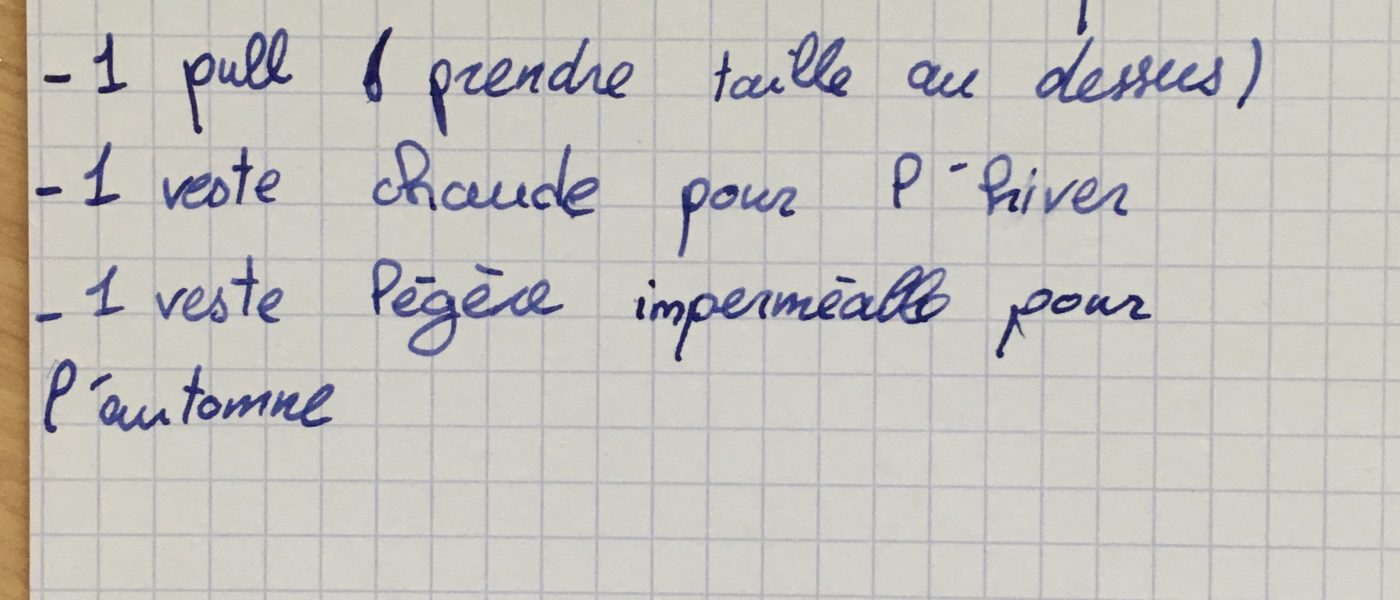 - 1 pull (prendre taille au dessus)
- 1 veste chaude pour l'hiver
- 1 veste légère imperméable pour
l'automne